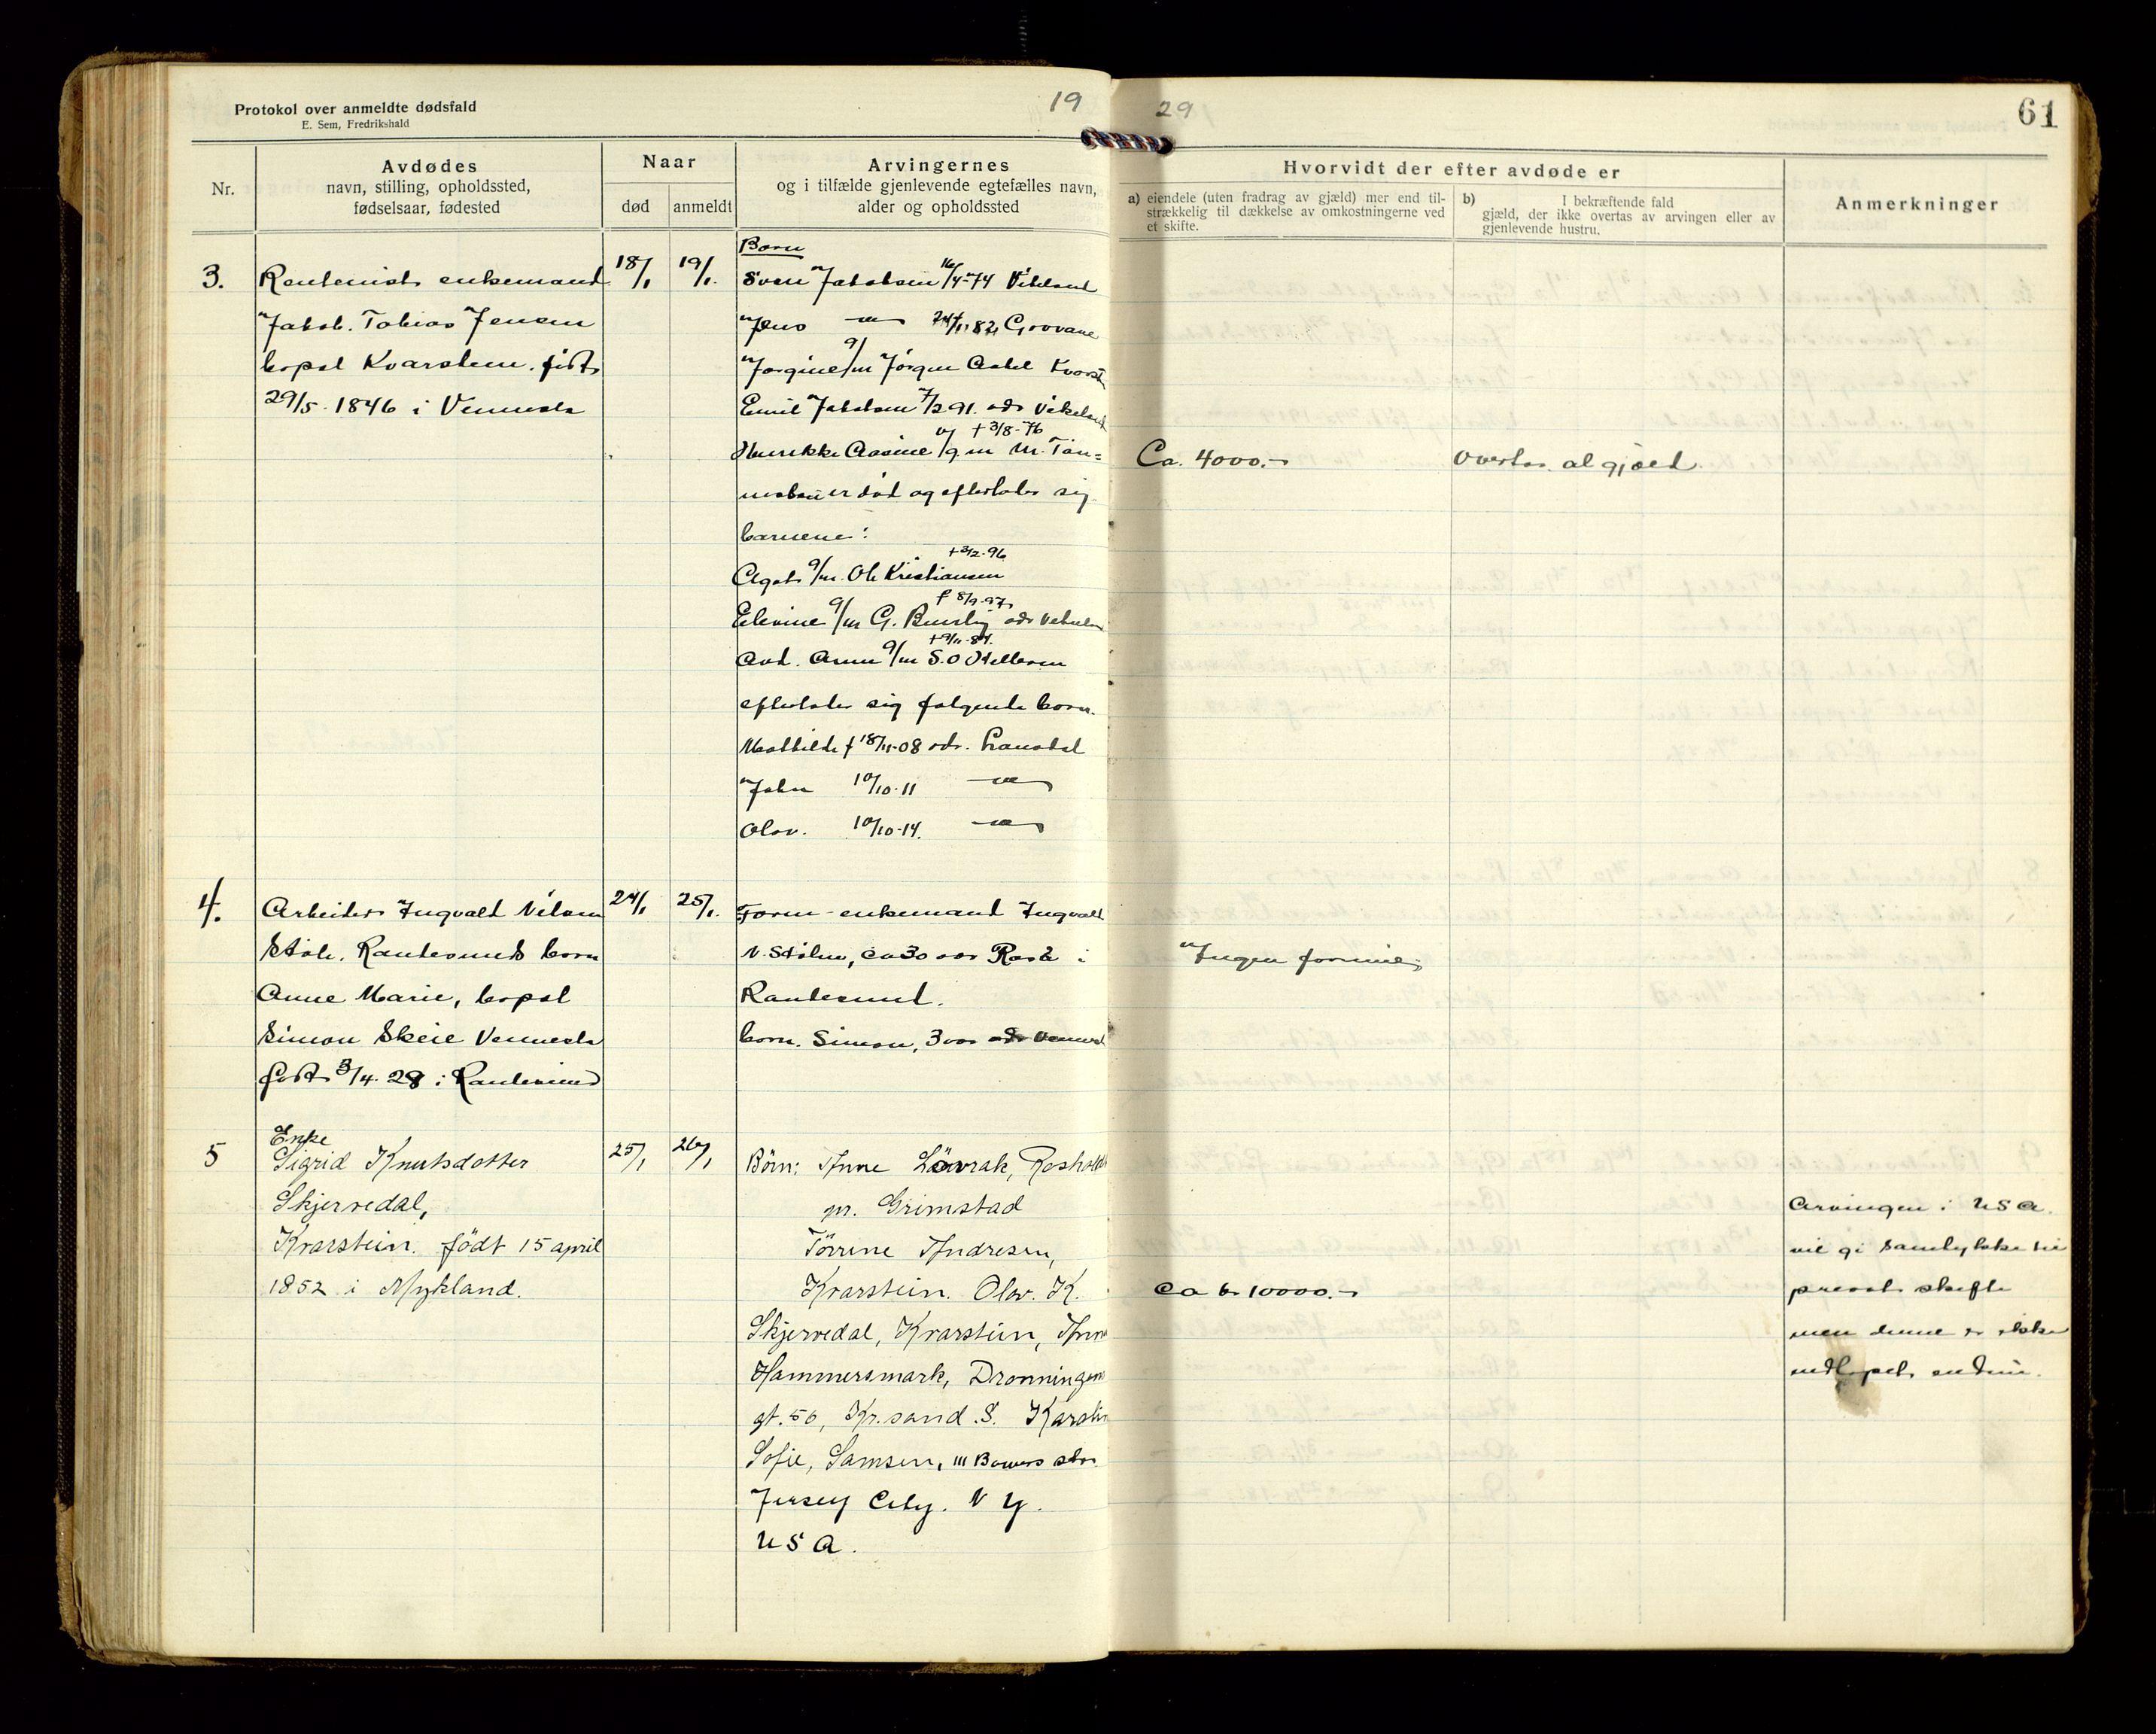 Protokol over anmeldte dødsfald
E. Sem, Fredrikshald
19
29
61
Nr.
Avdødes
navn, stilling, opholdssted,
fødselsaar, fødested
Naar
død
anmeldt
Arvingernes
og i tilfælde gjenlevende egtefælles navn,
alder og opholdssted
Hvorvidt der efter avdøde er
a) eiendele (uten fradrag av gjæld) mer end til-
strækkelig til dækkelse av omkostningerne ved
et skifte.
b) I bekræftende fald
gjæld, der ikke overtas av arvingen eller av
gjenlevende hustru.
Anmerkninger
3.
Rentenist enkemand
Jakob Tobias Jensen
bopel Kvarstein. født
29/5 1846 i Vennesla
18/1
19/1.
Børn
Sven Jakobsen 16/4-74 Vikeland
Jens 82 Grovane
Jørgine g/m Jörgen Aabel
Emil Jakobsen 7/2 91. ads Vikeland
+ 3/8-76
Aasine g.m M. Tøn=
er död og efterlater sig
barnene:
+ 3/2-96
Agat g/m. Ole Kristiansen
f 8/9-97
g/m G.
+ 9/11-84.
Avd. Anna g/m S.O
efterlater sig følgende born.
Mathilde f 18/11-08 ads.
John 10/10-11
Olav. 10/10-14.
Ca. 4000.-
overtar al gjæld.
4.
Arbeider Ingvald
Støle. Randesunds born
Anne Marie, bopel
Simon Skeie Vennesla
født 3/4. 28 i Randesund
24/1
25/1.
enkemand Ingvald
V. Stölen, ca 30 aar i
Randesund.
born. Simon, 3 aar
Ingen formue
5
Enke
Sigrid Knutsdotter
Skjervedal,
Kvarstein. født 15 april
1852 i Mykland.
25/1
26/1
Börn: Anne Lövrak, Rosholdt
pr. Grimstad
Tövine Andresen,
Kvarstein. Olav. K.
Skjervedal, Kvarstein, Anna
Hammersmark, Dronningens
gt. 50, Kr.sand .S. Karoline
Sofie, Samsen, 111 Bowers
Jersey City. N Y.
USA.
ca kr 10000.-
Arvingen i USA.
vil gi samtykke til
privat skifte
men denne er ikke
indløpet endnu.